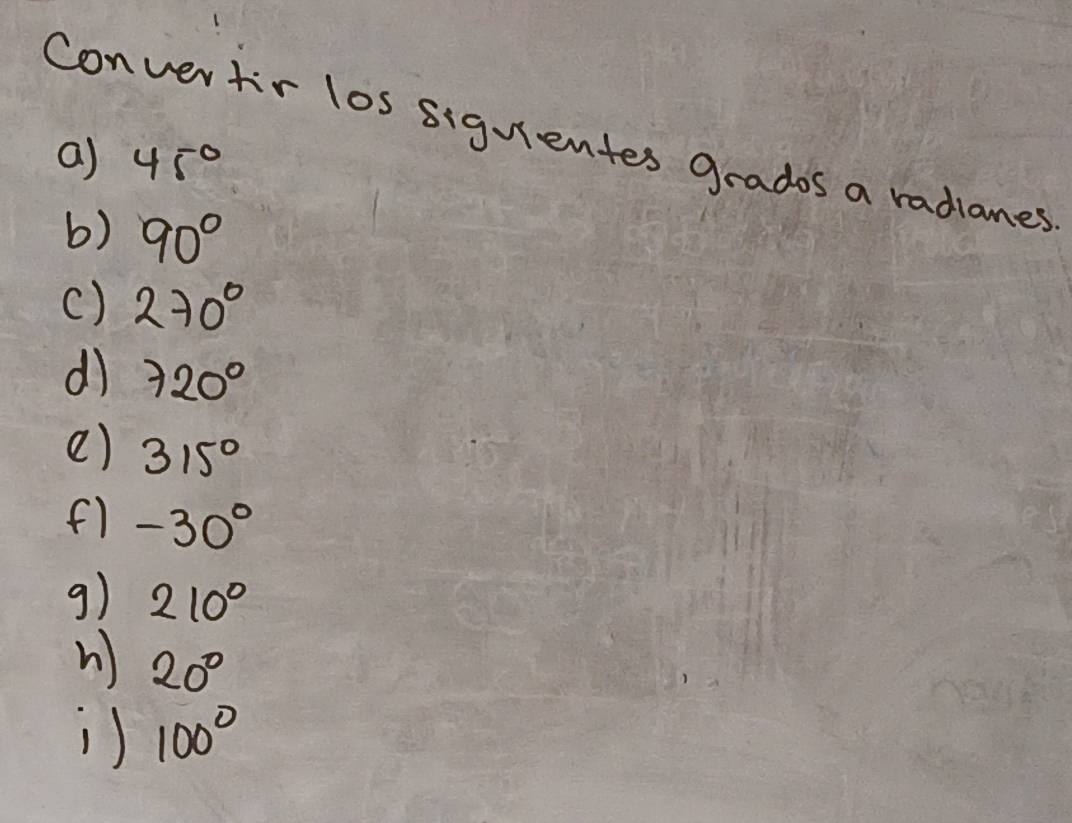 Convertir los siguientes grados a radianes.
a) 45°
b) 90°
c) 270°
d) 720°
e) 315°
f) -30°
g) 210°
h) 20°
i) 100°